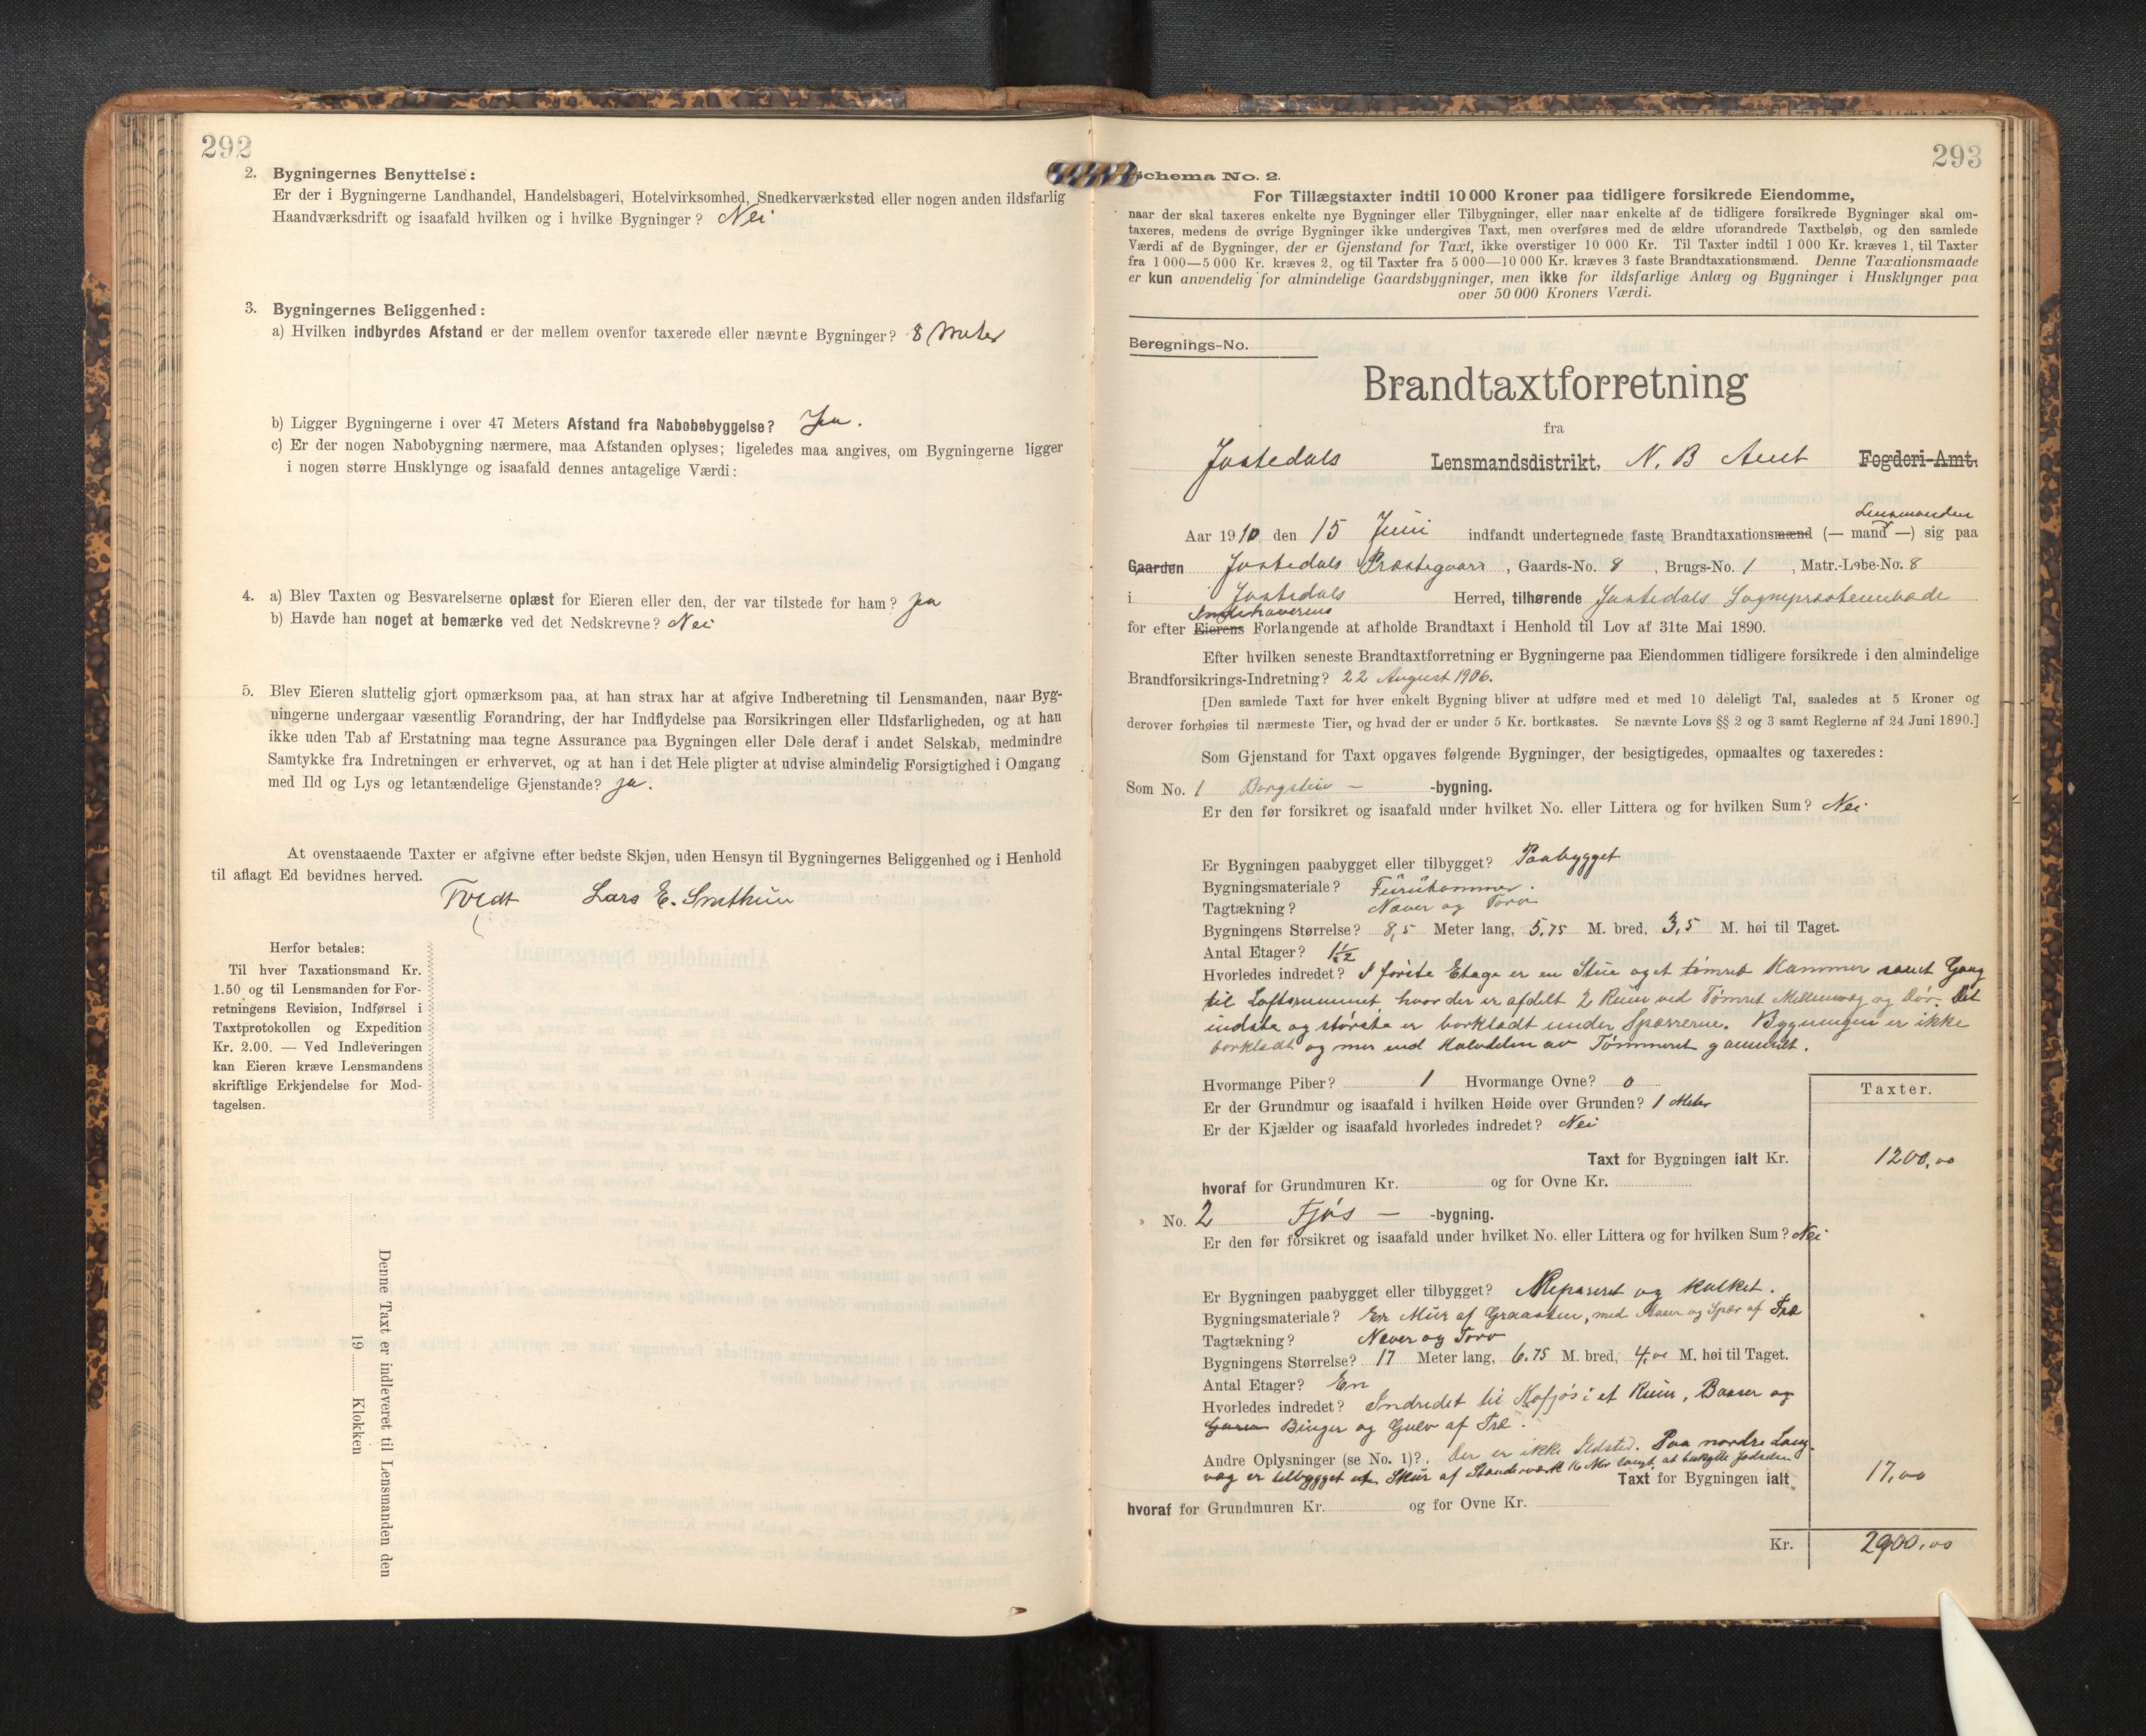 292
2. Bygningernes Benyttelse:
Er der i Bygningerne Landhandel, Handelsbageri, Hotelvirksomhed, Snedkerværksted eller nogen anden ildsfarlig
Haandværksdrift og isaafald hvilken og i hvilke Bygninger? Nei
3. Bygningernes Beliggenhed:
a) Hvilken indbyrdes Afstand er der mellem ovenfor taxerede eller nævnte Bygninger? 8 Meter
b) Ligger Bygningerne i over 47 Meters Afstand fra Nabobebyggelse? Ja.
c) Er der nogen Nabobygning nærmere, maa Afstanden oplyses; ligeledes maa angives, om Bygningerne ligger
i nogen større Husklynge og isaafald dennes antagelige Værdi:
4. a) Blev Taxten og Besvarelserne oplæst for Eieren eller den, der var tilstede for ham? Ja
b) Havde han noget at bemærke ved det Nedskrevne? Nei
5. Blev Eieren sluttelig gjort opmærksom paa, at han strax har at afgive Indberetning til Lensmanden, naar Byg-
ningerne undergaar væsentlig Forandring, der har Indflydelse paa Forsikringen eller Ildsfarligheden, og at han
ikke uden Tab af Erstatning maa tegne Assurance paa Bygningen eller Dele deraf i andet Selskab, medmindre
Samtykke fra Indretningen er erhvervet, og at han i det Hele pligter at udvise almindelig Forsigtighed i Omgang
med Ild og Lys og letantændelige Gjenstande? Ja.
At ovenstaaende Taxter er afgivne efter bedste Skjøn, uden Hensyn til Bygningernes Beliggenhed og i Henhold
til aflagt Ed bevidnes herved.
Tvedt Lars E. Snethun
Herfor betales:
Til hver Taxationsmand Kr.
1.50 og til Lensmanden for For-
retningens Revision, Indførsel i
Taxtprotokollen og Expedition
Kr. 2.00. — Ved Indleveringen
kan Eieren kræve Lensmandens
skriftlige Erkjendelse for Mod-
tagelsen.
Denne Taxt er indleveret til Lensmanden den
19 Klokken
293
Schema No. 2.
For Tillægstaxter indtil 10 000 Kroner paa tidligere forsikrede Eiendomme,
naar der skal taxeres enkelte nye Bygninger eller Tilbygninger, eller naar enkelte af de tidligere forsikrede Bygninger skal om-
taxeres, medens de øvrige Bygninger ikke undergives Taxt, men overføres med de ældre uforandrede Taxtbeløb, og den samlede
Værdi af de Bygninger, der er Gjenstand for Taxt, ikke overstiger 10 000 Kr. Til Taxter indtil 1 000 Kr. kræves 1, til Taxter
fra 1 000—5 000 Kr. kræves 2, og til Taxter fra 5 000—10 000 Kr. kræves 3 faste Brandtaxationsmænd. Denne Taxationsmaade
er kun anvendelig for almindelige Gaardsbygninger, men ikke for ildsfarlige Anlæg og Bygninger i Husklynger paa
over 50 000 Kroners Værdi.
Beregnings-No.
Brandtaxtforretning
fra
Jostedals Lensmandsdistrikt, N. B Amt Fogderi-Amt.
Lensmanden
Aar 1910 den 15 Juni indfandt undertegnede faste Brandtaxationsmænd (— mand —) sig paa
Gaarden Jostedals Præstegaard, Gaards-No. 8, Brugs-No. 1, Matr.-Løbe-No. 8
i Jostedals Herred, tilhørende Jostedals Sognepræsteembede
Indehaverens
for efter Eierens Forlangende at afholde Brandtaxt i Henhold til Lov af 31te Mai 1890.
Efter hvilken seneste Brandtaxtforretning er Bygningerne paa Eiendommen tidligere forsikrede i den almindelige
Brandforsikrings-Indretning? 22 August 1906.
[Den samlede Taxt for hver enkelt Bygning bliver at udføre med et med 10 deleligt Tal, saaledes at 5 Kroner og
derover forhøies til nærmeste Tier, og hvad der er under 5 Kr. bortkastes. Se nævnte Lovs §§ 2 og 3 samt Reglerne af 24 Juni 1890.]
Som Gjenstand for Taxt opgaves følgende Bygninger, der besigtigedes, opmaaltes og taxeredes:
Som No. 1 Borgstue — -bygning.
Er den før forsikret og isaafald under hvilket No. eller Littera og for hvilken Sum? Nei
Er Bygningen paabygget eller tilbygget? Paabygget
Bygningsmateriale? Furutømmer.
Tagtækning? Næver og Torv
Bygningens Størrelse? 8,5 Meter lang, 5,75 M. bred, 3,5 M. høi til Taget.
Antal Etager? 1½
Hvorledes indredet? I første Etage er en Stue og et tømret Kammer samt Gang
til Loftsrummet hvor der er afdelt 2 Rum ved Tømret Mellemvæg og Dør. Det
indste og største er borkladt under Sperrerne. Bygningen er ikke
borkladt og mer end Halvdelen av Tømmeret gammelt.
Hvormange Piber? 1 Hvormange Ovne? 0
Er der Grundmur og isaafald i hvilken Høide over Grunden? 1 Meter
Er der Kjælder og isaafald hvorledes indredet? Nei
Taxter.
Taxt for Bygningen ialt Kr. 1200,00
hvoraf for Grundmuren Kr. og for Ovne Kr.
» No. 2 Fjøs — -bygning.
Er den før forsikret og isaafald under hvilket No. eller Littera og for hvilken Sum? Nei
Er Bygningen paabygget eller tilbygget? Reparert og kalket.
Bygningsmateriale? En Mur af Graasten, med Aaser og Spær af Træ
Tagtækning? Næver og Torv
Bygningens Størrelse? 17 Meter lang, 6.75 M. bred, 4,00 M. høi til Taget.
Antal Etager? En
Hvorledes indredet? Indredet til Kofjøs i et Rum, Baaser og
Binger og Gulv af Træ.
Andre Oplysninger (se No. 1)? Der er ikke Ildsted. Paa nordre Lang-
væg er tilbygget et Skur af Stenderværk 16 Mtr langt, at beskytte
Taxt for Bygningen ialt 17,00
hvoraf for Grundmuren Kr. og for Ovne Kr.
Kr. 2900,00